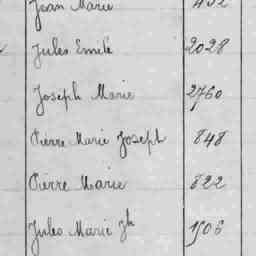 Jean Marie 432
Jules Emile 2028
Joseph Marie 2760
Pierre Marie Joseph 848
Pierre Marie 822
Jules Marie Jh 1506